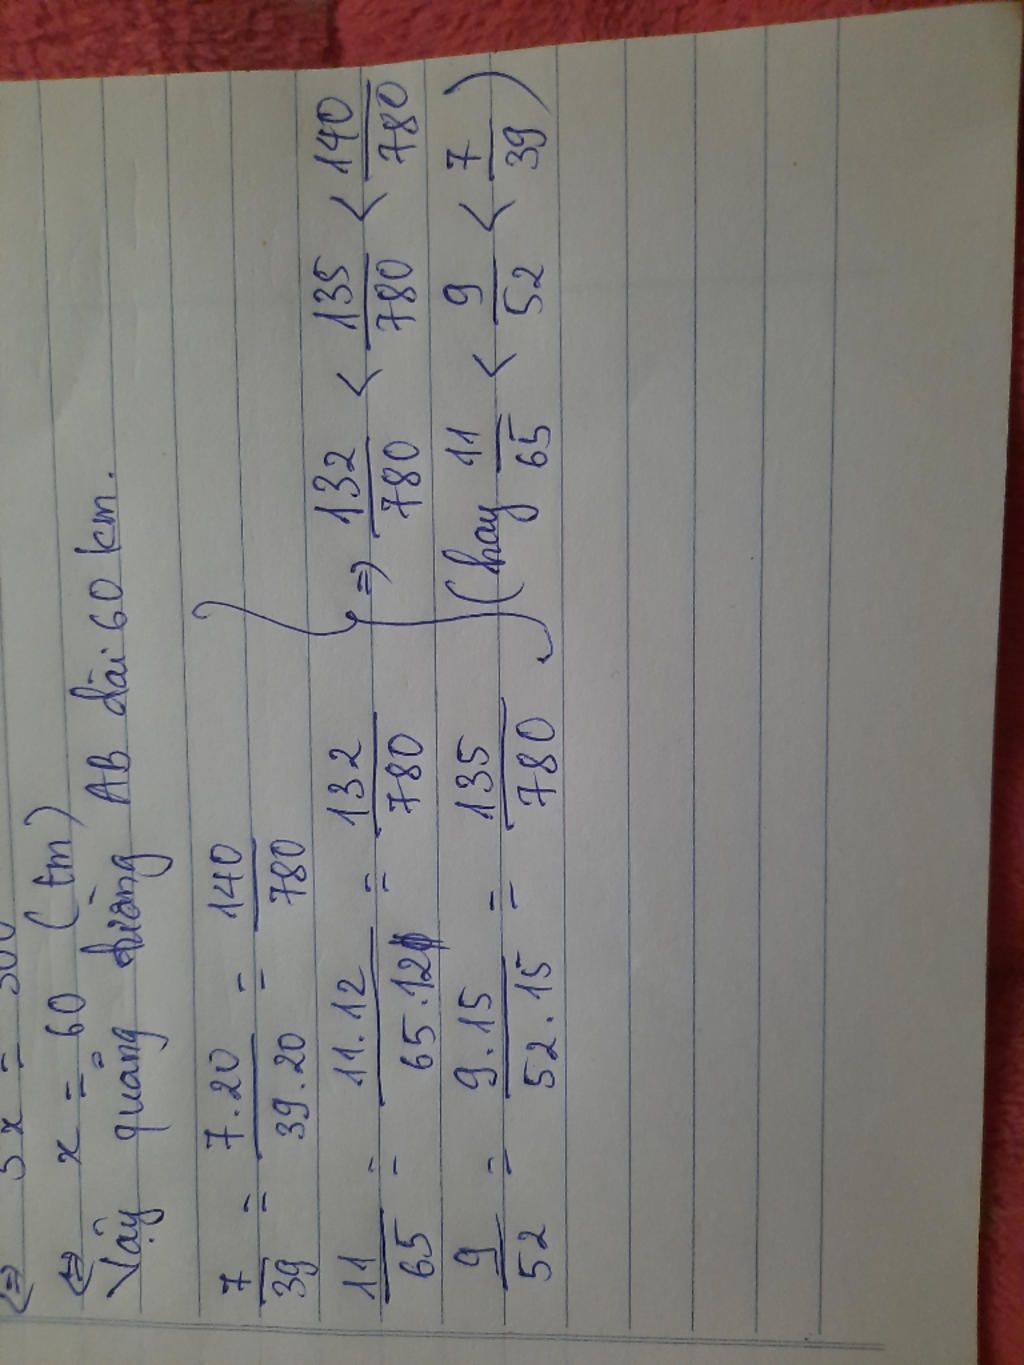 ⇔ 5x = 300
⇔ x = 60 (tm)
Vậy quãng đường AB dài 60 km.
7/39 = 7.20/39.20 = 140/780
11/65 = 11.12/65.12 = 132/780
9/52 = 9.15/52.15 = 135/780
⇒ 132/780 < 135/780 < 140/780
(hay 11/65 < 9/52 < 7/39)